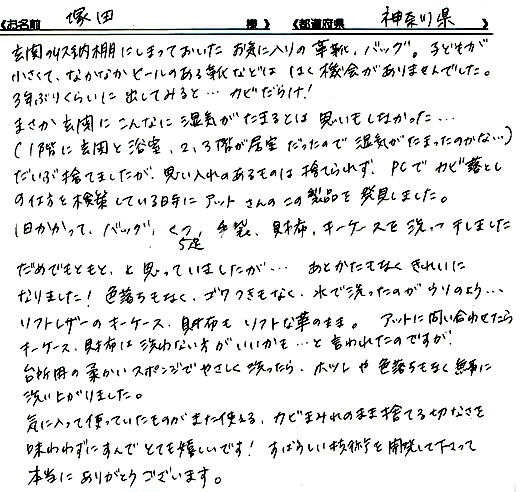 《お名前 塚田 様 》《都道府県 神奈川県 》
玄関の収納棚にしまっておいた お気に入りの革靴、バッグ。子どもが
小さくて、なかなかヒールのある靴などは はく機会がありませんでした。
3年ぶりくらいに出してみると… カビだらけ!
まさか玄関にこんなに湿気がたまるとは思いもしなかった…
(1階に玄関と浴室、2,3階が居室だったので湿気がたまったのかな…)
だいぶ捨てましたが、思い入れのあるものは捨てられず、PCでカビ落とし
の仕方を検索している時にアットさんのこの製品を発見しました。
1日かかって、バッグ、くつ5足、手袋、財布、キーケースを洗って干しました
だめでもともと、と思っていましたが… あとかたもなくきれいに
なりました! 色落ちもなく、ゴワつきもなく、水で洗ったのがウソのよう…
ソフトレザーのキーケース、財布もソフトな革のまま。 アットに問い合わせたら
キーケース、財布は洗わない方がいいかも…と言われたのですが、
台所用の柔かいスポンジでやさしく洗ったら、ホツレや色落ちもなく無事に
洗い上がりました。
気に入って使っていたものがまた使える、カビまみれのまま捨てる切なさを
味わわずにすんでとても嬉しいです! すばらしい技術を開発して下さって
本当にありがとうございます。